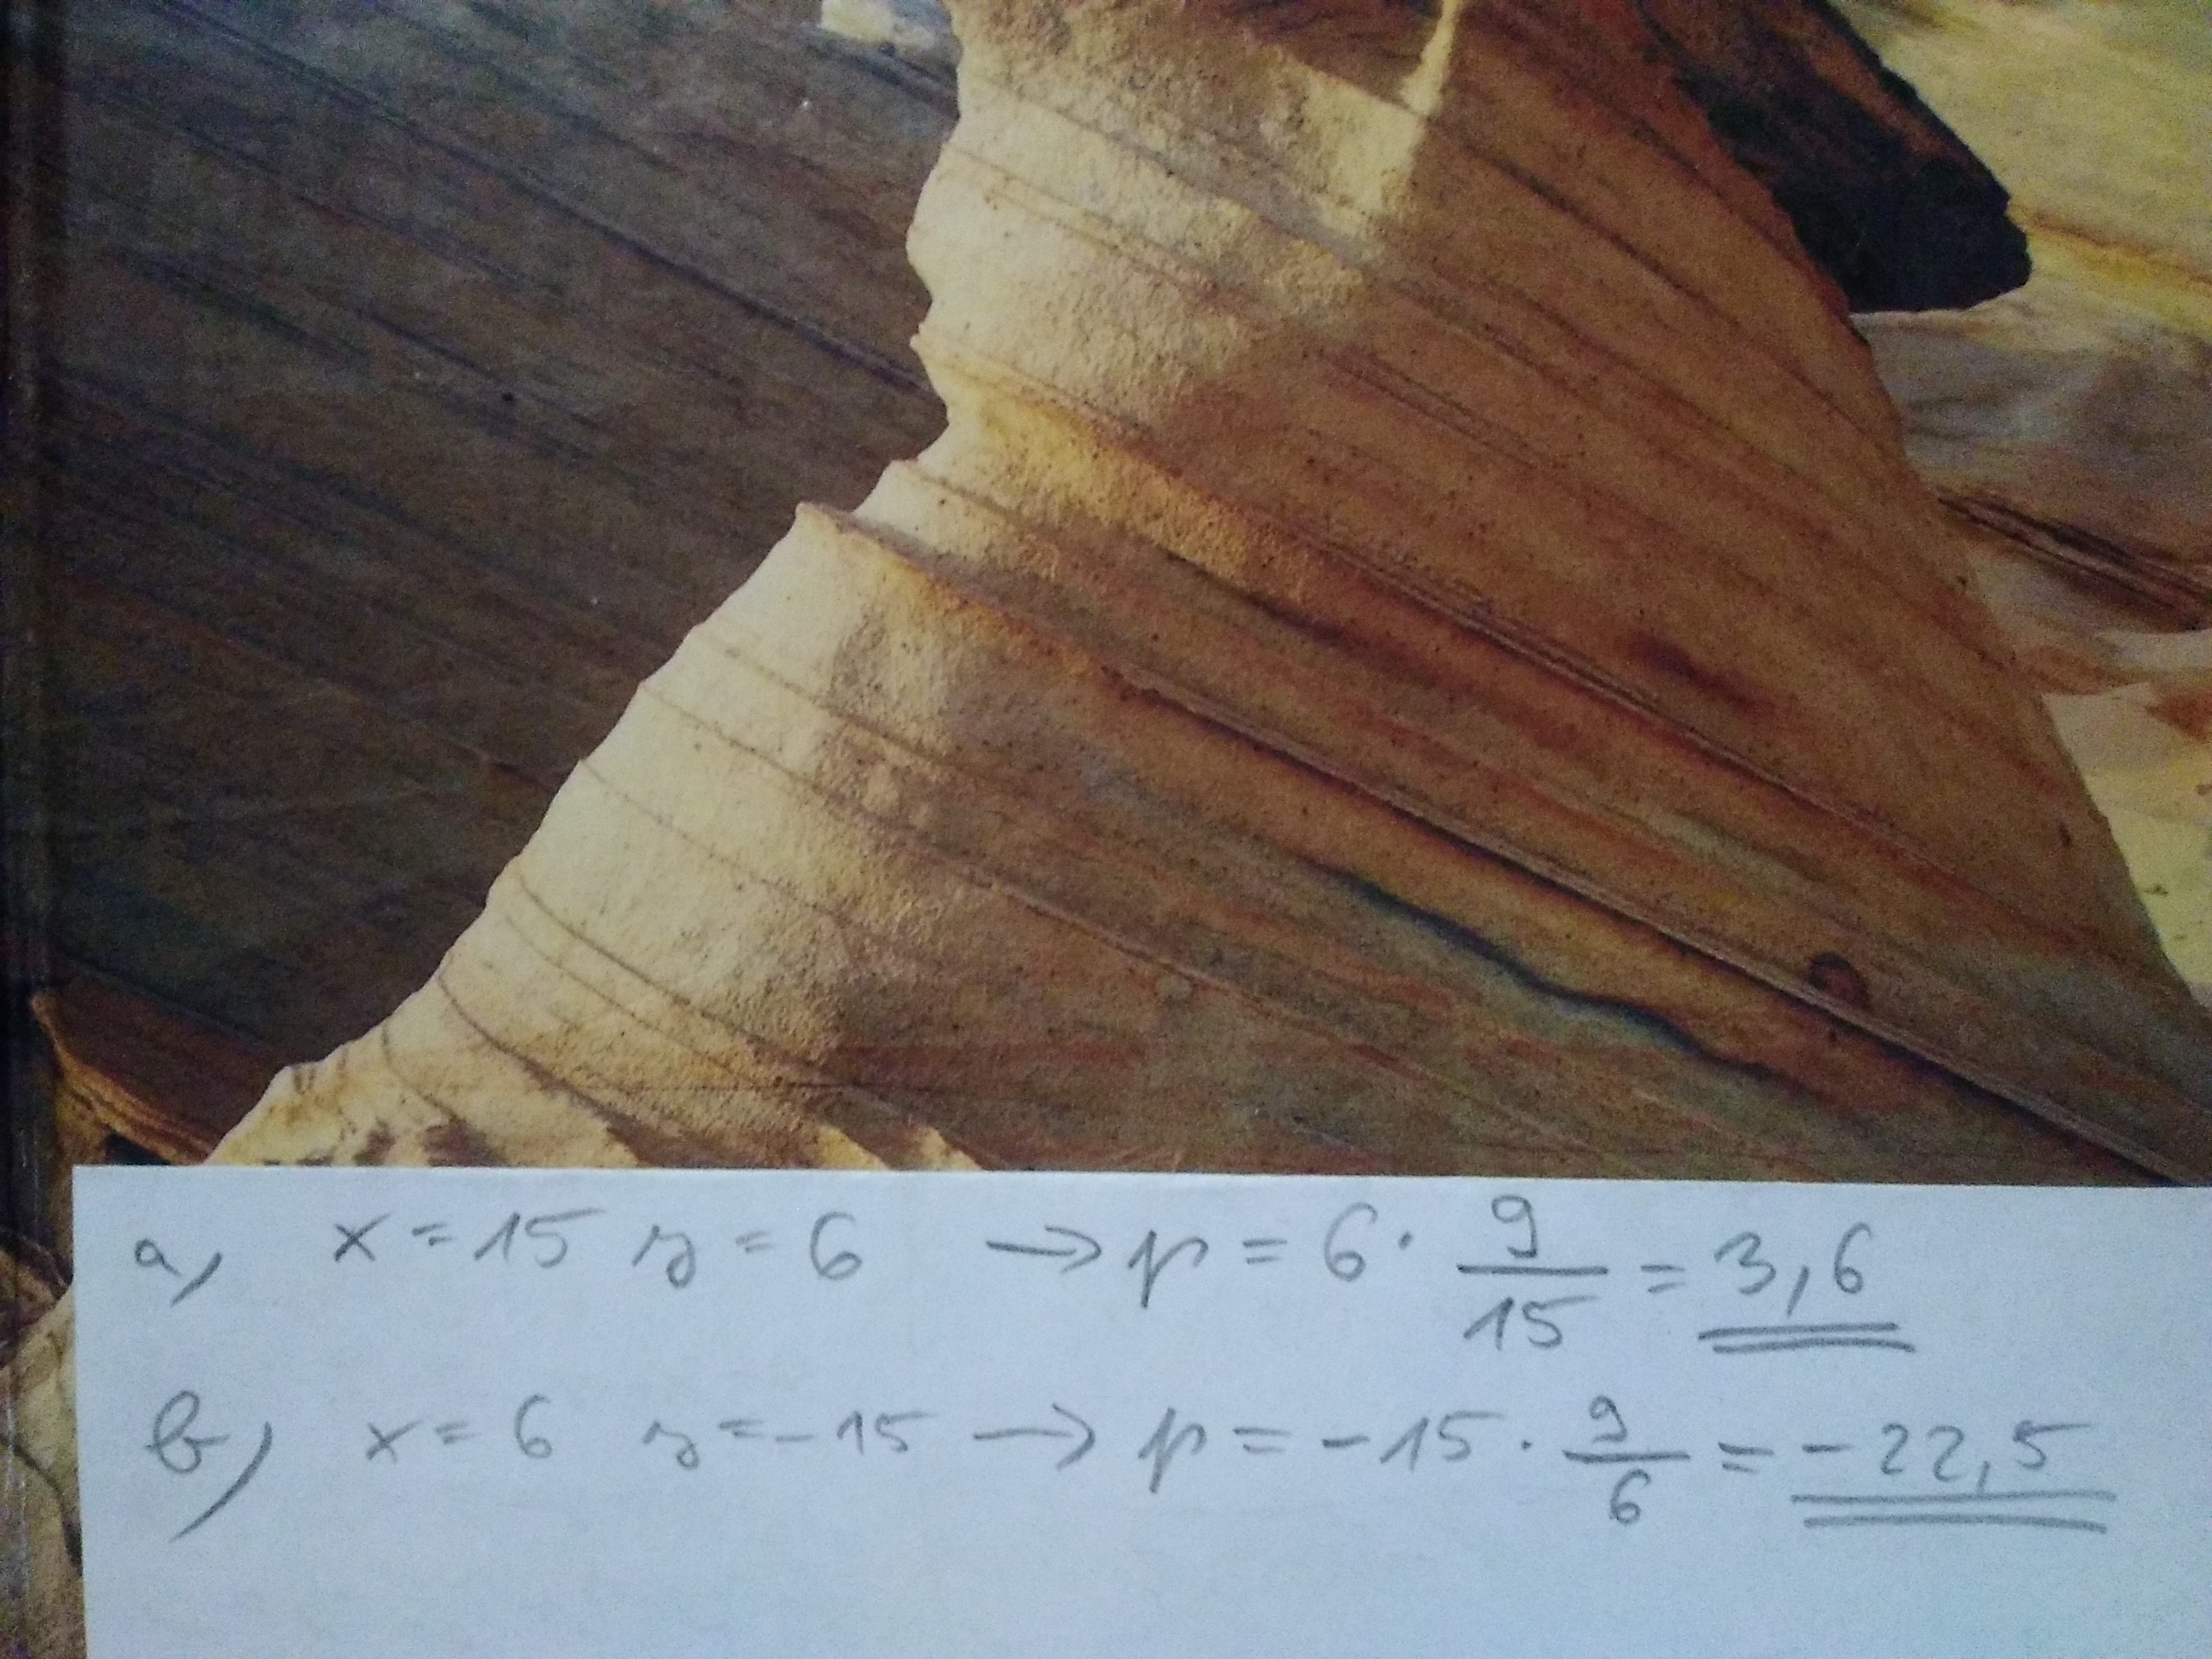 a) x = 15 y = 6 → p = 6 · 9/15 = 3,6
b) x = 6 y = -15 → p = -15 · 9/6 = -22,5